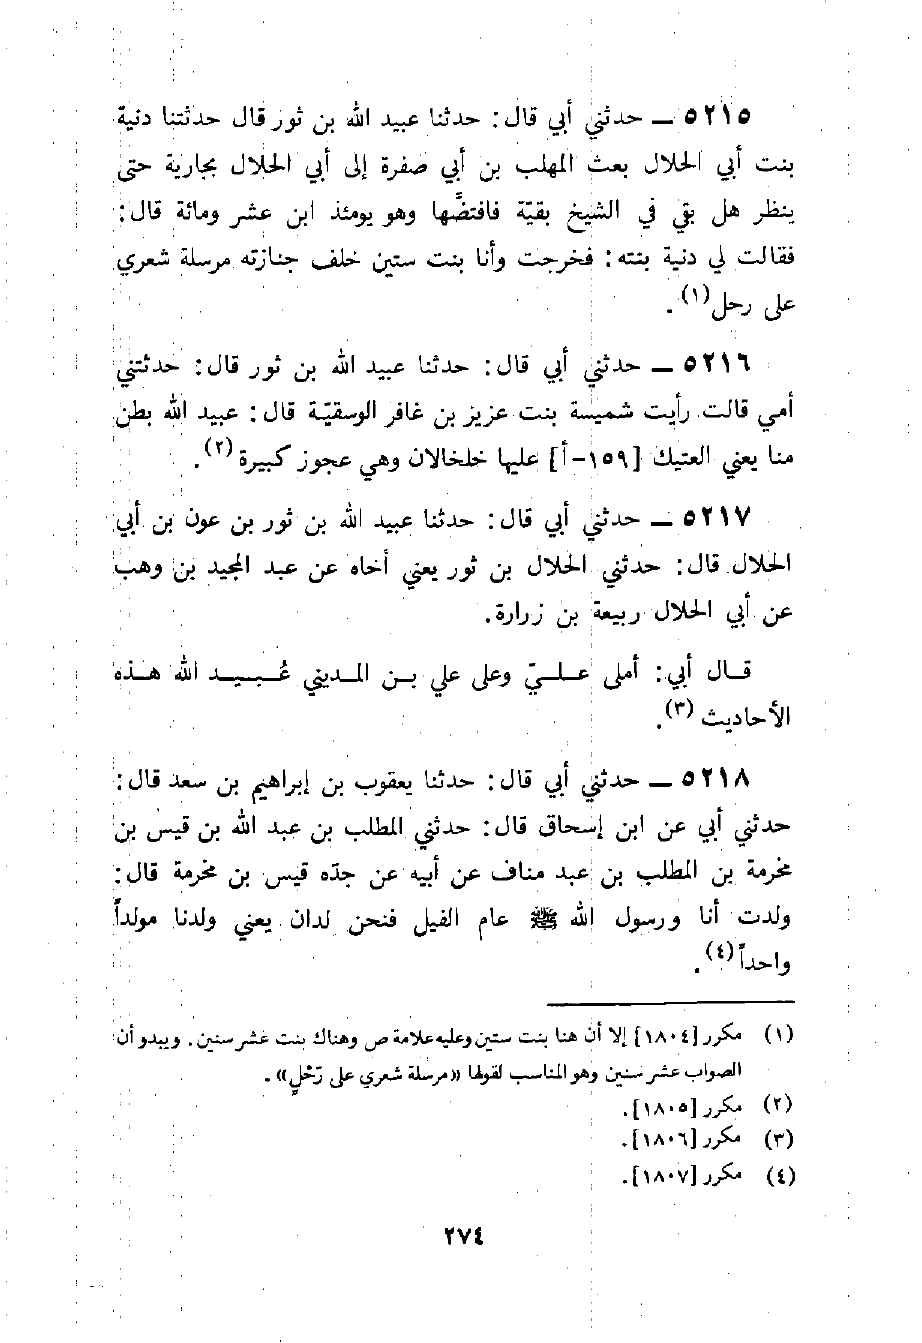 ٥٢١٥ ــ حدثني أبي قال : حدثنا عبيد الله بن ثور قال حدثتنا دنية
بنت أبي الحلال بعث المهلب بن أبي صفرة إلى أبي الحلال بجارية حتى
ينظر هل بقي في الشيخ بقيّة فافتضَّها وهو يومئذ ابن عشر ومائة قال :
فقالت لي دنية بنته : فخرجت وأنا بنت ستين خلف جنازته مرسلة شعري
على رحل(١) .
٥٢١٦ ــ حدثني أبي قال : حدثنا عبيد الله بن ثور قال : حدثتني
أمي قالت رأيت شميسة بنت عزيز بن غافر الوسقيّة قال : عبيد الله بطن
منا يعني العتيك [١٥٩-أ] عليها خلخالان وهي عجوز كبيرة(٢).
٥٢١٧ ــ حدثني أبي قال : حدثنا عبيد الله بن ثور بن عون بن أبي
الحلال قال : حدثني الحلال بن ثور يعني أخاه عن عبد المجيد بن وهب
عن أبي الحلال ربيعة بن زرارة.
قــال أبي : أملى عــلــيّ وعلى علي بــن المــديني عُــبــيــد الله هــذه
الأحاديث(٣).
٥٢١٨ ــ حدثني أبي قال : حدثنا يعقوب بن إبراهيم بن سعد قال :
حدثني أبي عن ابن إسحاق قال : حدثني المطلب بن عبد الله بن قيس بن
مخرمة بن المطلب بن عبد مناف عن أبيه عن جدّه قيس بن مخرمة قال :
ولدت أنا ورسول الله ﷺ عام الفيل فنحن لدان يعني ولدنا مولداً
واحداً(٤).
(١) مكرر [١٨٠٤] إلا أن هنا بنت ستين وعليه علامة ص وهناك بنت عشر سنين. ويبدو أن
الصواب عشر سنين وهو المناسب لقولها «مرسلة شعري على رَحْلٍ» .
(٢) مكرر [١٨٠٥].
(٣) مكرر [١٨٠٦].
(٤) مكرر [١٨٠٧].
٢٧٤